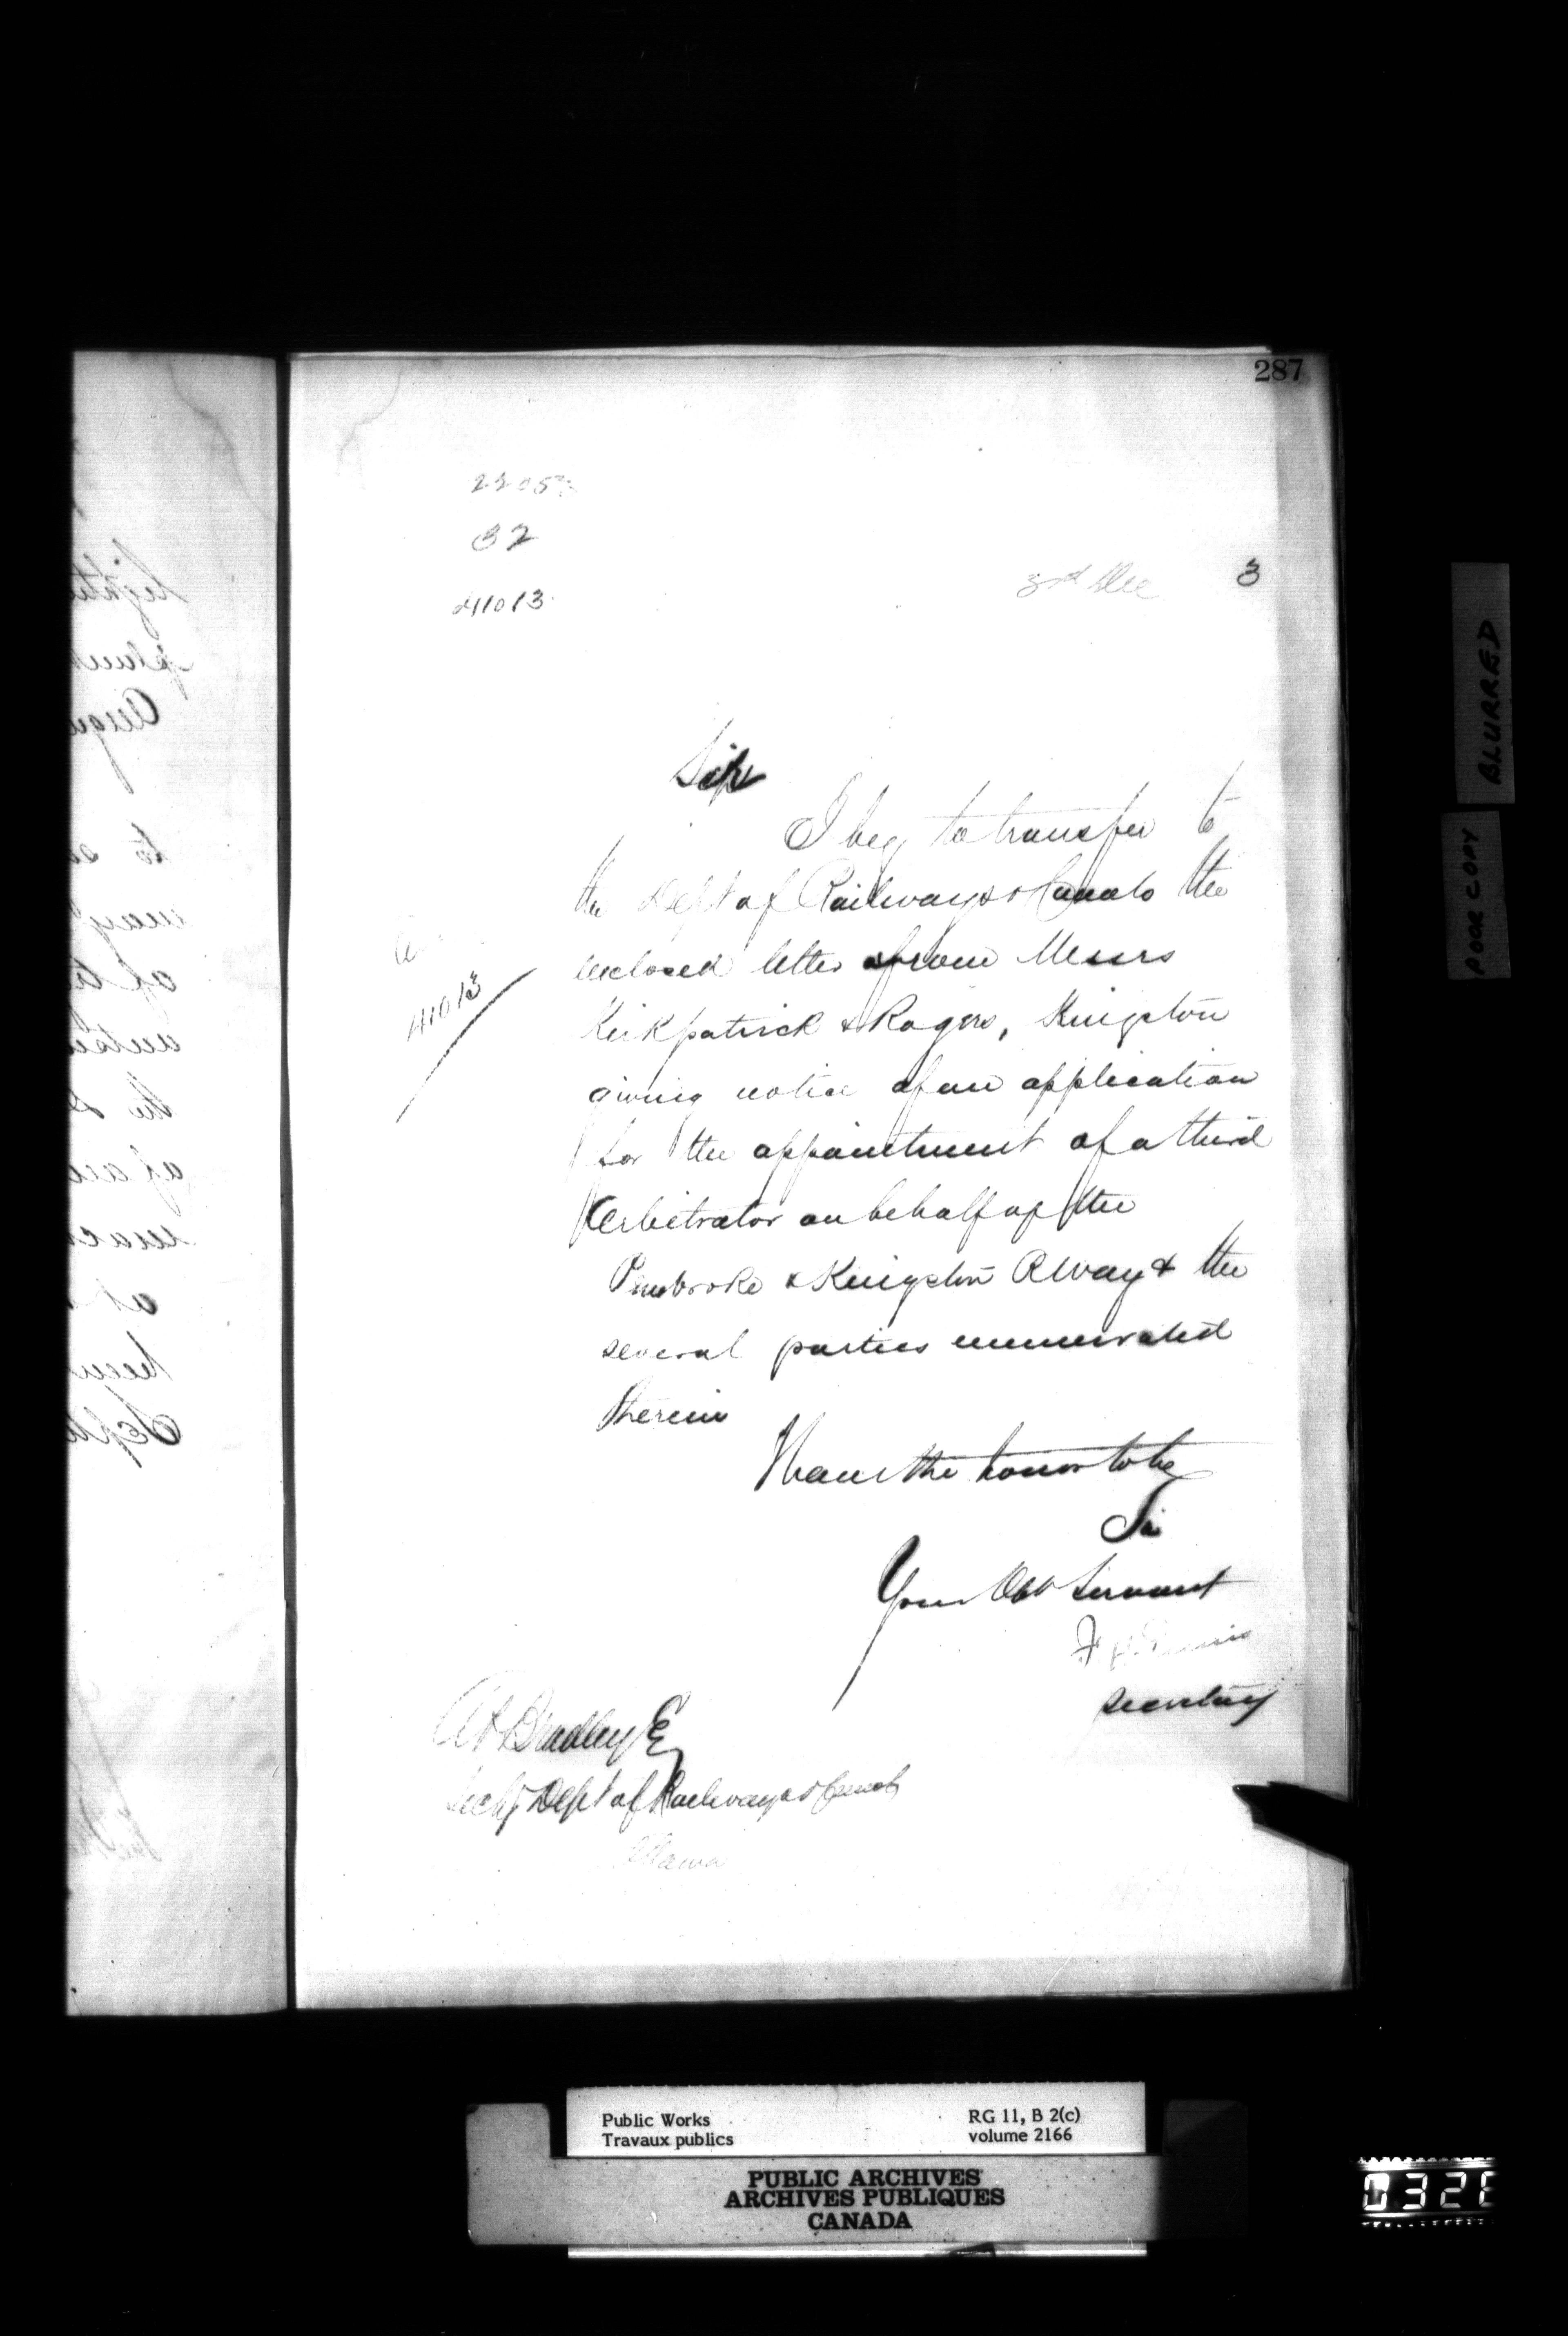 287
32
41013
3rd Dec 3
Sir
I beg to transfer to
the Dept of Railways & Canals the
enclosed letter from Messrs
41013
Kirkpatrick & Rogers, Kingston
giving notice of an application
for the appointment of a third
Arbitrator on behalf of the
Pembroke & Kingston RWay & the
several parties enumerated
therein
I have the honor to be
Sir
Your Obt Servant
Secretary
Bradley E
Secy Dept of Railways & Canals
Ottawa
BLURRED
POOR COPY
Public Works
Travaux publics
RG 11, B 2(c)
volume 2166
PUBLIC ARCHIVES
ARCHIVES PUBLIQUES
CANADA